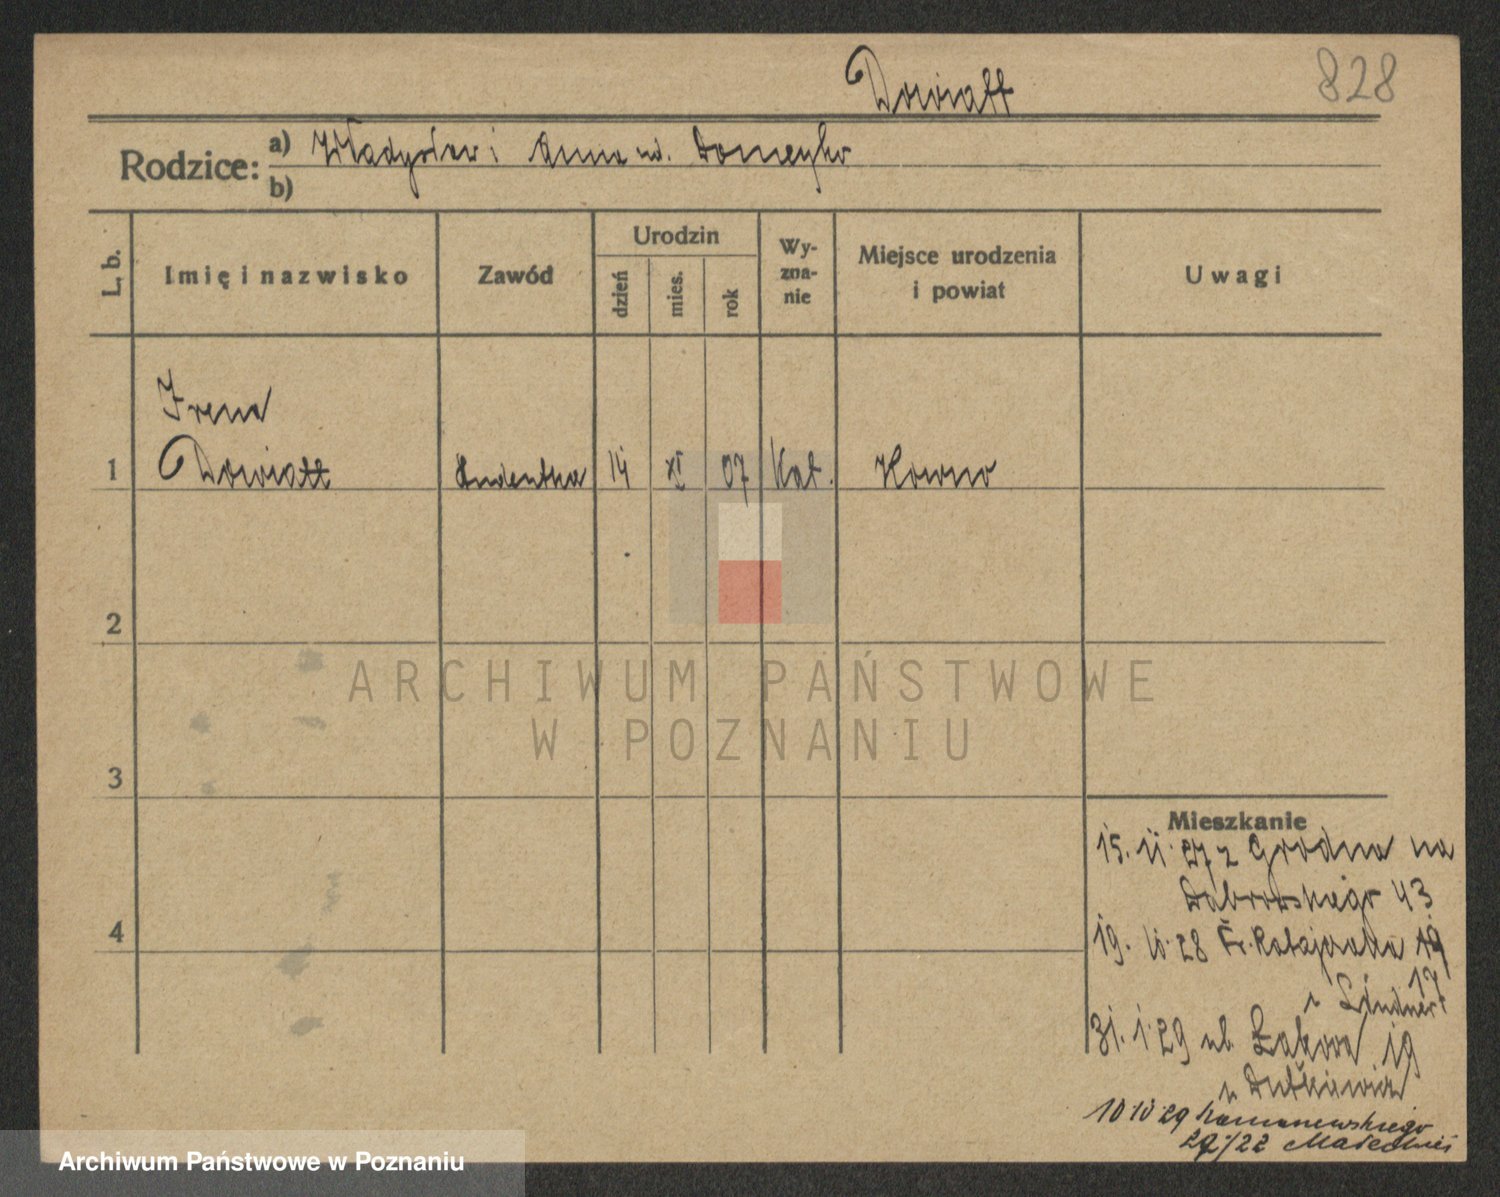 Dowiatt
828
Rodzice:
a) Władysław i Anna ur. Domeyko
b)
L. b.
Imię i nazwisko
Zawód
Urodzin
dzień
mies.
rok
Wy-
zna-
nie
Miejsce urodzenia
i powiat
Uwagi
Irena
1 Dowiatt studentka 14 XI 07 kat. Kowno
2
3
4
ARCHIWUM PAŃSTWOWE
W POZNANIU
Mieszkanie
15. 11. 27 z Grodna na
Dąbrowskiego 43
19. 28 Fr. Ratajczaka 19
17
u Lindnert
31. 1. 29 ul. Łąkowa 19
u Dutkiewicz
10 29 Romanowskiego
Archiwum Państwowe w Poznaniu